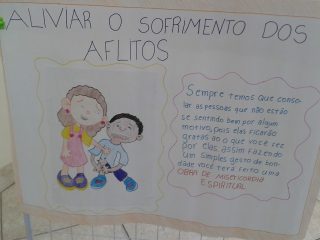 ALIVIAR O SOFRIMENTO DOS
AFLITOS
Sempre temos que conso-
lar as pessoas que não estão
se sentindo bem por algum
motivo, pois elas ficarão
gratas ao o que você fez
por elas assim fazendo
um simples gesto de bon-
dade você terá feito uma
OBRA DE MISERICÓRDIA
ESPIRITUAL